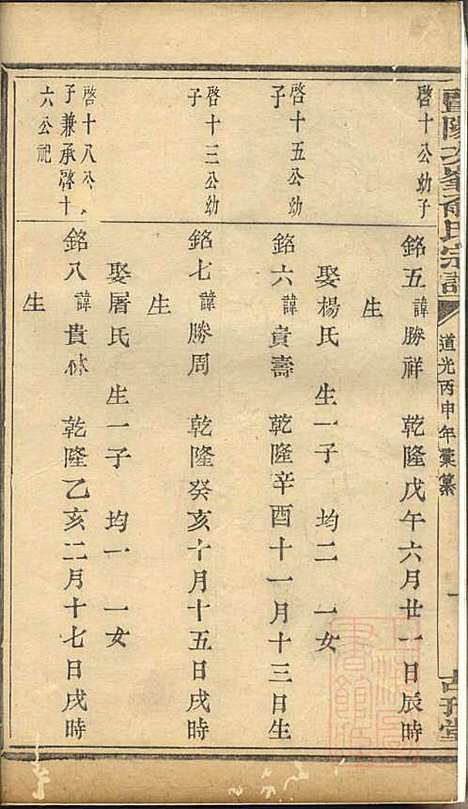 暨陽次峯俞氏宗譜
道光丙申年彙纂
一
啓十公幼子
銘五 諱勝祥 乾隆戊午六月廿一日辰時
生
娶楊氏 生一子 均二 一女
啓十五公幼
子
銘六 諱貴壽 乾隆辛酉十一月十三日生
啓十三公幼
子
銘七 諱勝周 乾隆癸亥十月十五日戌時
生
娶屠氏 生一子 均一 一女
啓十八公
子兼承啓十
六公祀
銘八 諱貴林 乾隆乙亥二月十七日戌時
生